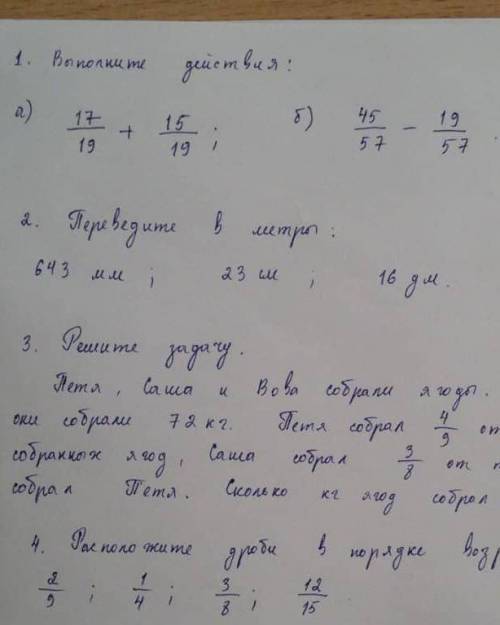 1. Выполните действия:
а) 17/19 + 15/19 ; б) 45/57 − 19/57 .
2. Переведите в метры:
643 мм ; 23 см ; 16 дм.
3. Решите задачу.
Петя, Саша и Вова собрали ягоды.
они собрали 72 кг. Петя собрал 4/9 от
собранных ягод, Саша собрал 3/8 от
собрал Петя. Сколько кг ягод собрал
4. Расположите дроби в порядке
2/9 ; 1/4 ; 3/8 ; 12/15